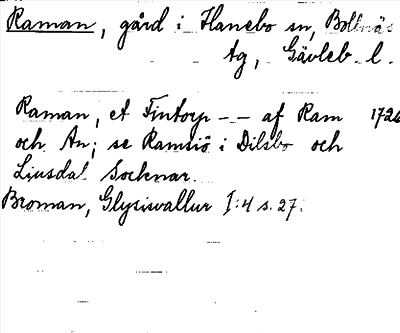 Raman, gård i Hanebo sn, Bollnäs
tg, Gävleb. l.
Raman, et Fintorp - - af Ram 1726
och An; se Ramsiö i Dilsbo och
Liusdal Socknar.
Broman, Glysisvallur I:4 s. 27.